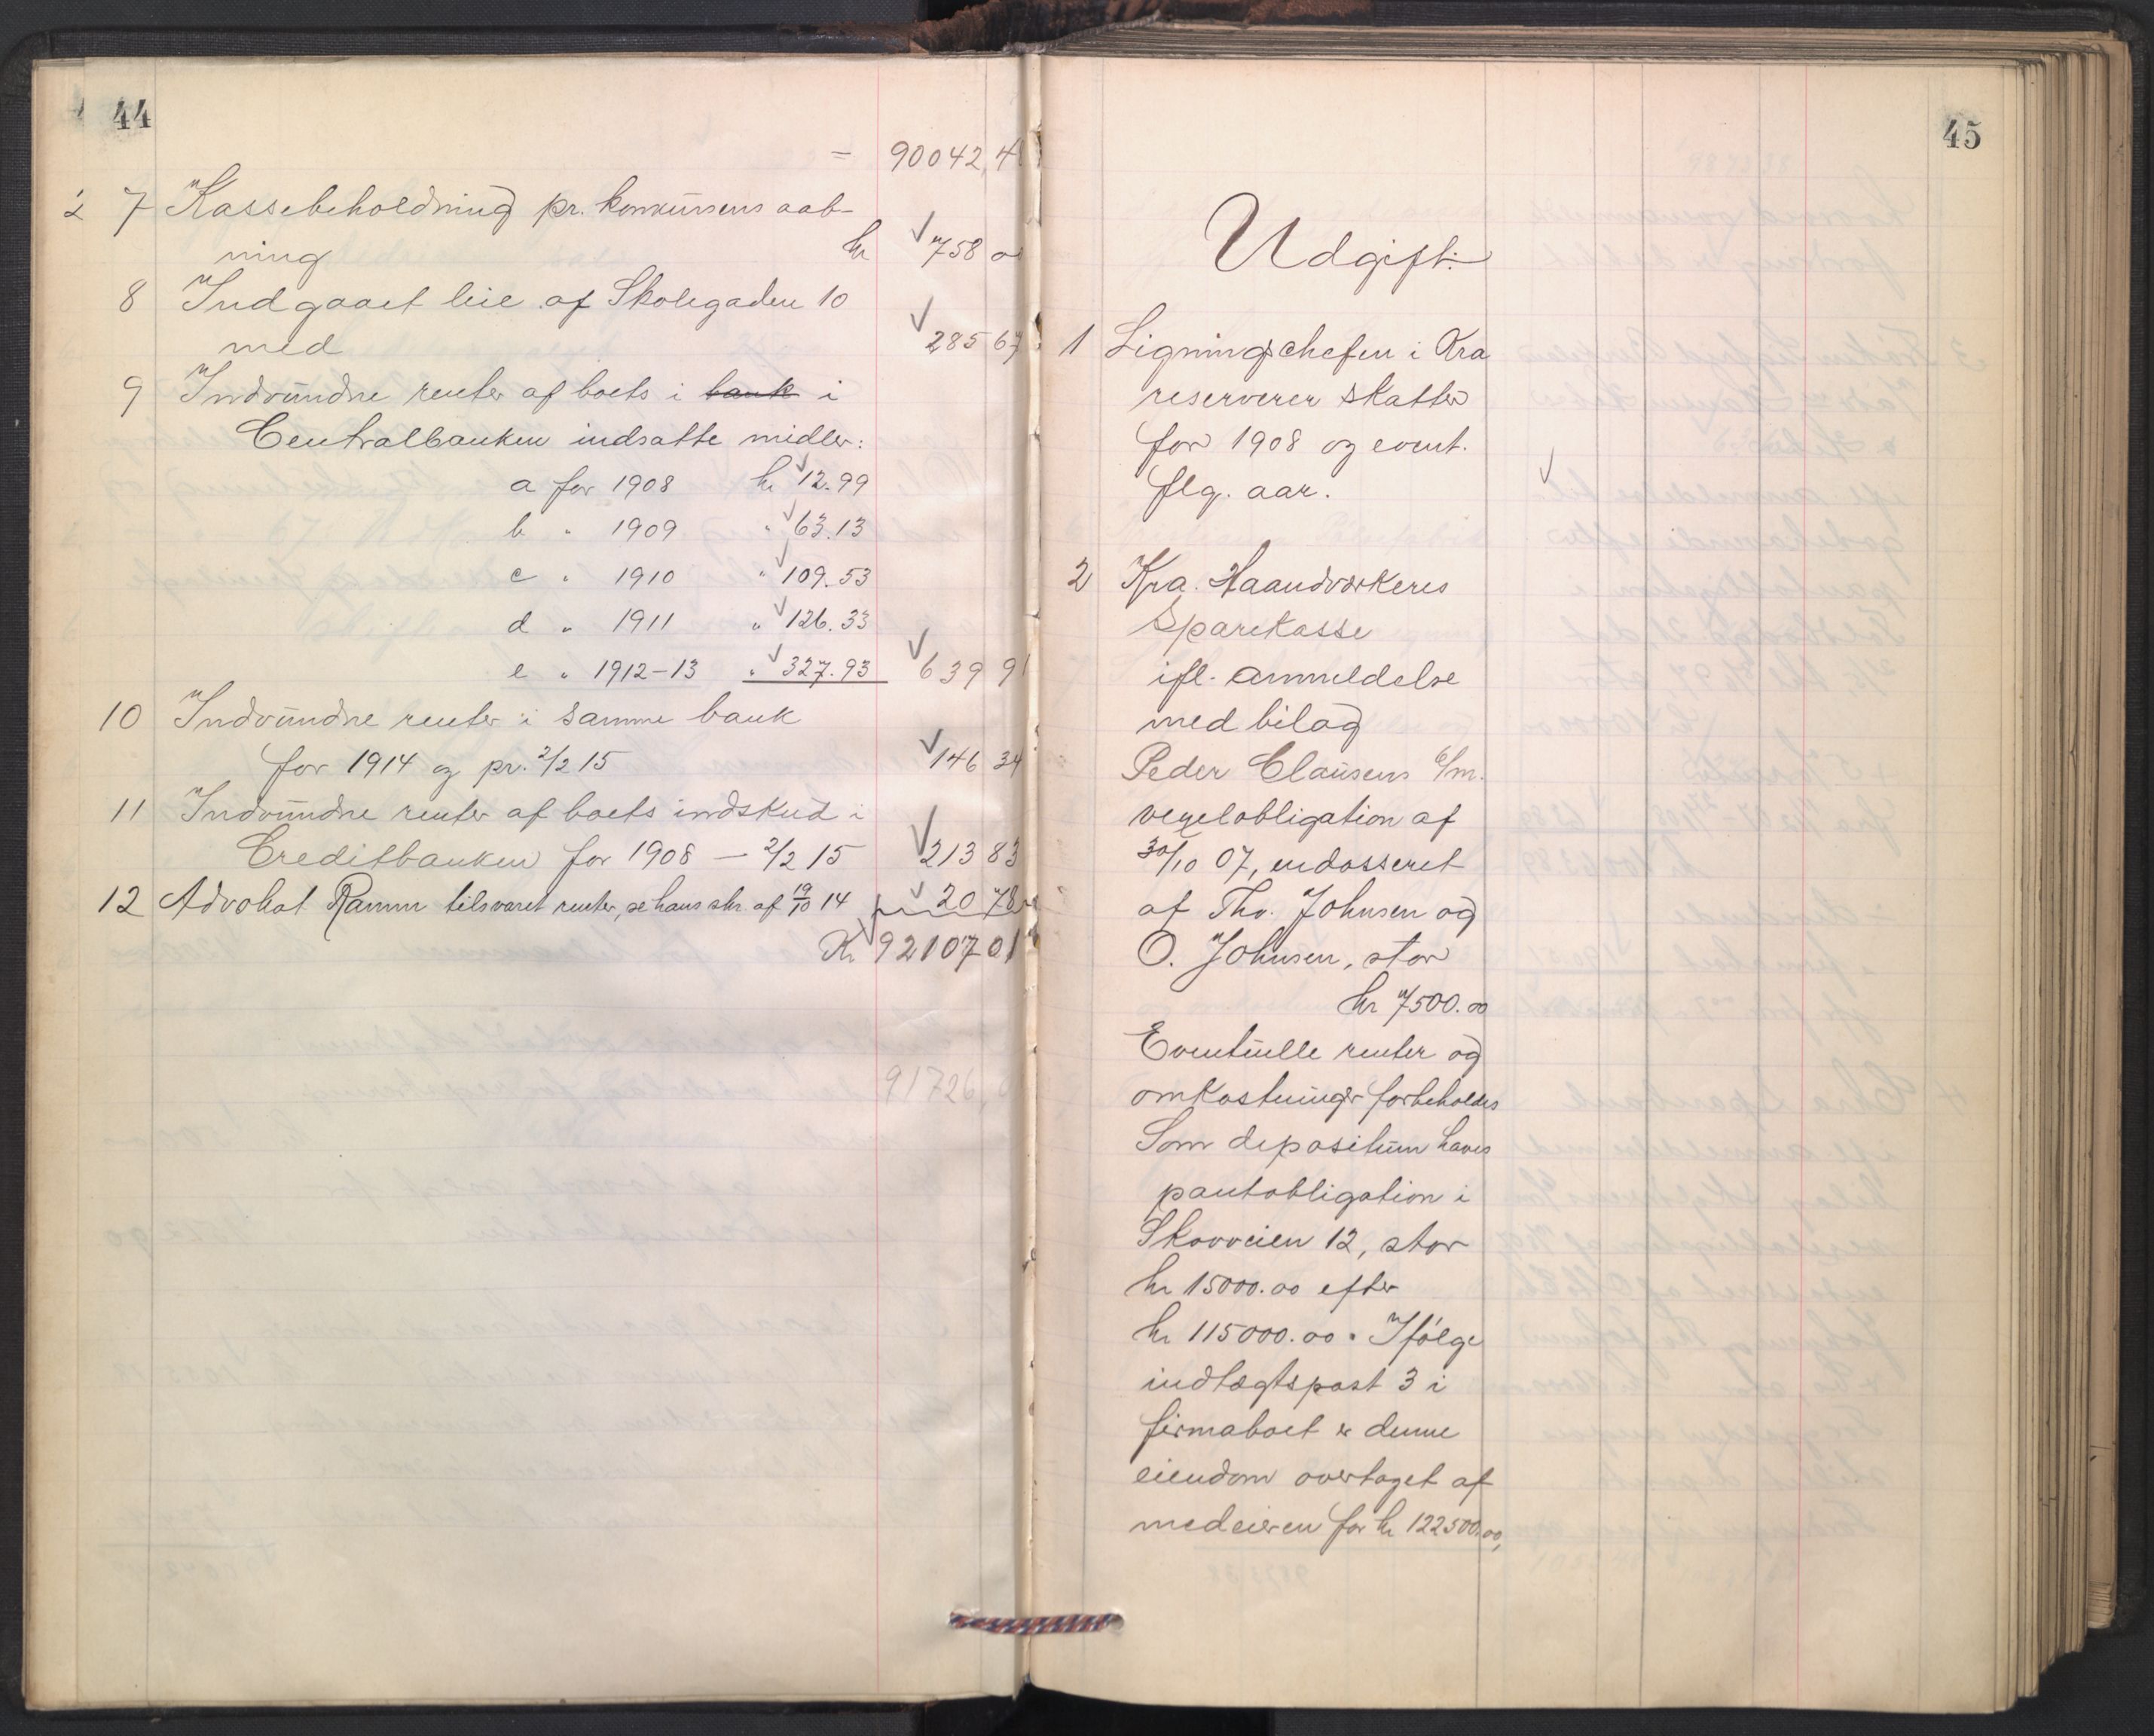 44
= 90042,4
7 Kassebeholdning pr. konkursens aab-
ning kr 758 00
8 Indgaaet leie af Skolegaden 10
med 285 67
9 Indvundne renter af boets i bank i
Centralbanken indsatte midler:
a for 1908 kr 12.99
b " 1909 " 63.13
c " 1910 " 109.53
d " 1911 " 126.33
e " 1912-13 " 327.93 639 91
10 Indvundne renter i samme bank
for 1914 og pr. 2/2 15 146 34
11 Indvundne renter af boets indskud i
Creditbanken for 1908 - 2/2 15 213 83
12 Advokat Ramm tilsvaret renter, se hans skr. af 19/10 14 20 78
Kr 92107 01
91726,
45
Udgift:
1 Ligningschefen i Kra
reserverer skatter
for 1908 og event.
flg. aar.
2 Kra. Haandværkeres
Sparekasse
ifl. anmeldelse
med bilag
Peder Clausens c/m.
vexelobligation af
30/10 07, endosseret
af Thv. Johnsen og
O. Johnsen, stor
kr 7500.00
Eventuelle renter og
omkostninger forbeholdes
Som depositum haves
pantobligation i
Skovveien 12, stor
kr 15000.00 efter
kr 115000.00. Ifølge
indtægtspost 3 i
firmaboet er denne
eiendom overtaget af
medeieren for kr 122500.00,